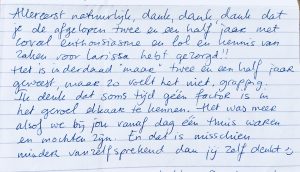 Allereerst natuurlijk, dank, dank, dank dat
je de afgelopen twee en een half jaar met
zoveel enthousiasme en lol en kennis van
zaken voor Larissa hebt gezorgd!!
Het is inderdaad "maar" twee en een half jaar
geweest, maar zo voelt het niet, grappig.
Ik denk dat soms tijd géén factor is in
het gevoel elkaar te kennen. Het was meer
alsof we bij jou vanaf dag één thuis waren
en mochten zijn. En dat is misschien
minder vanzelfsprekend dan jij zelf denkt